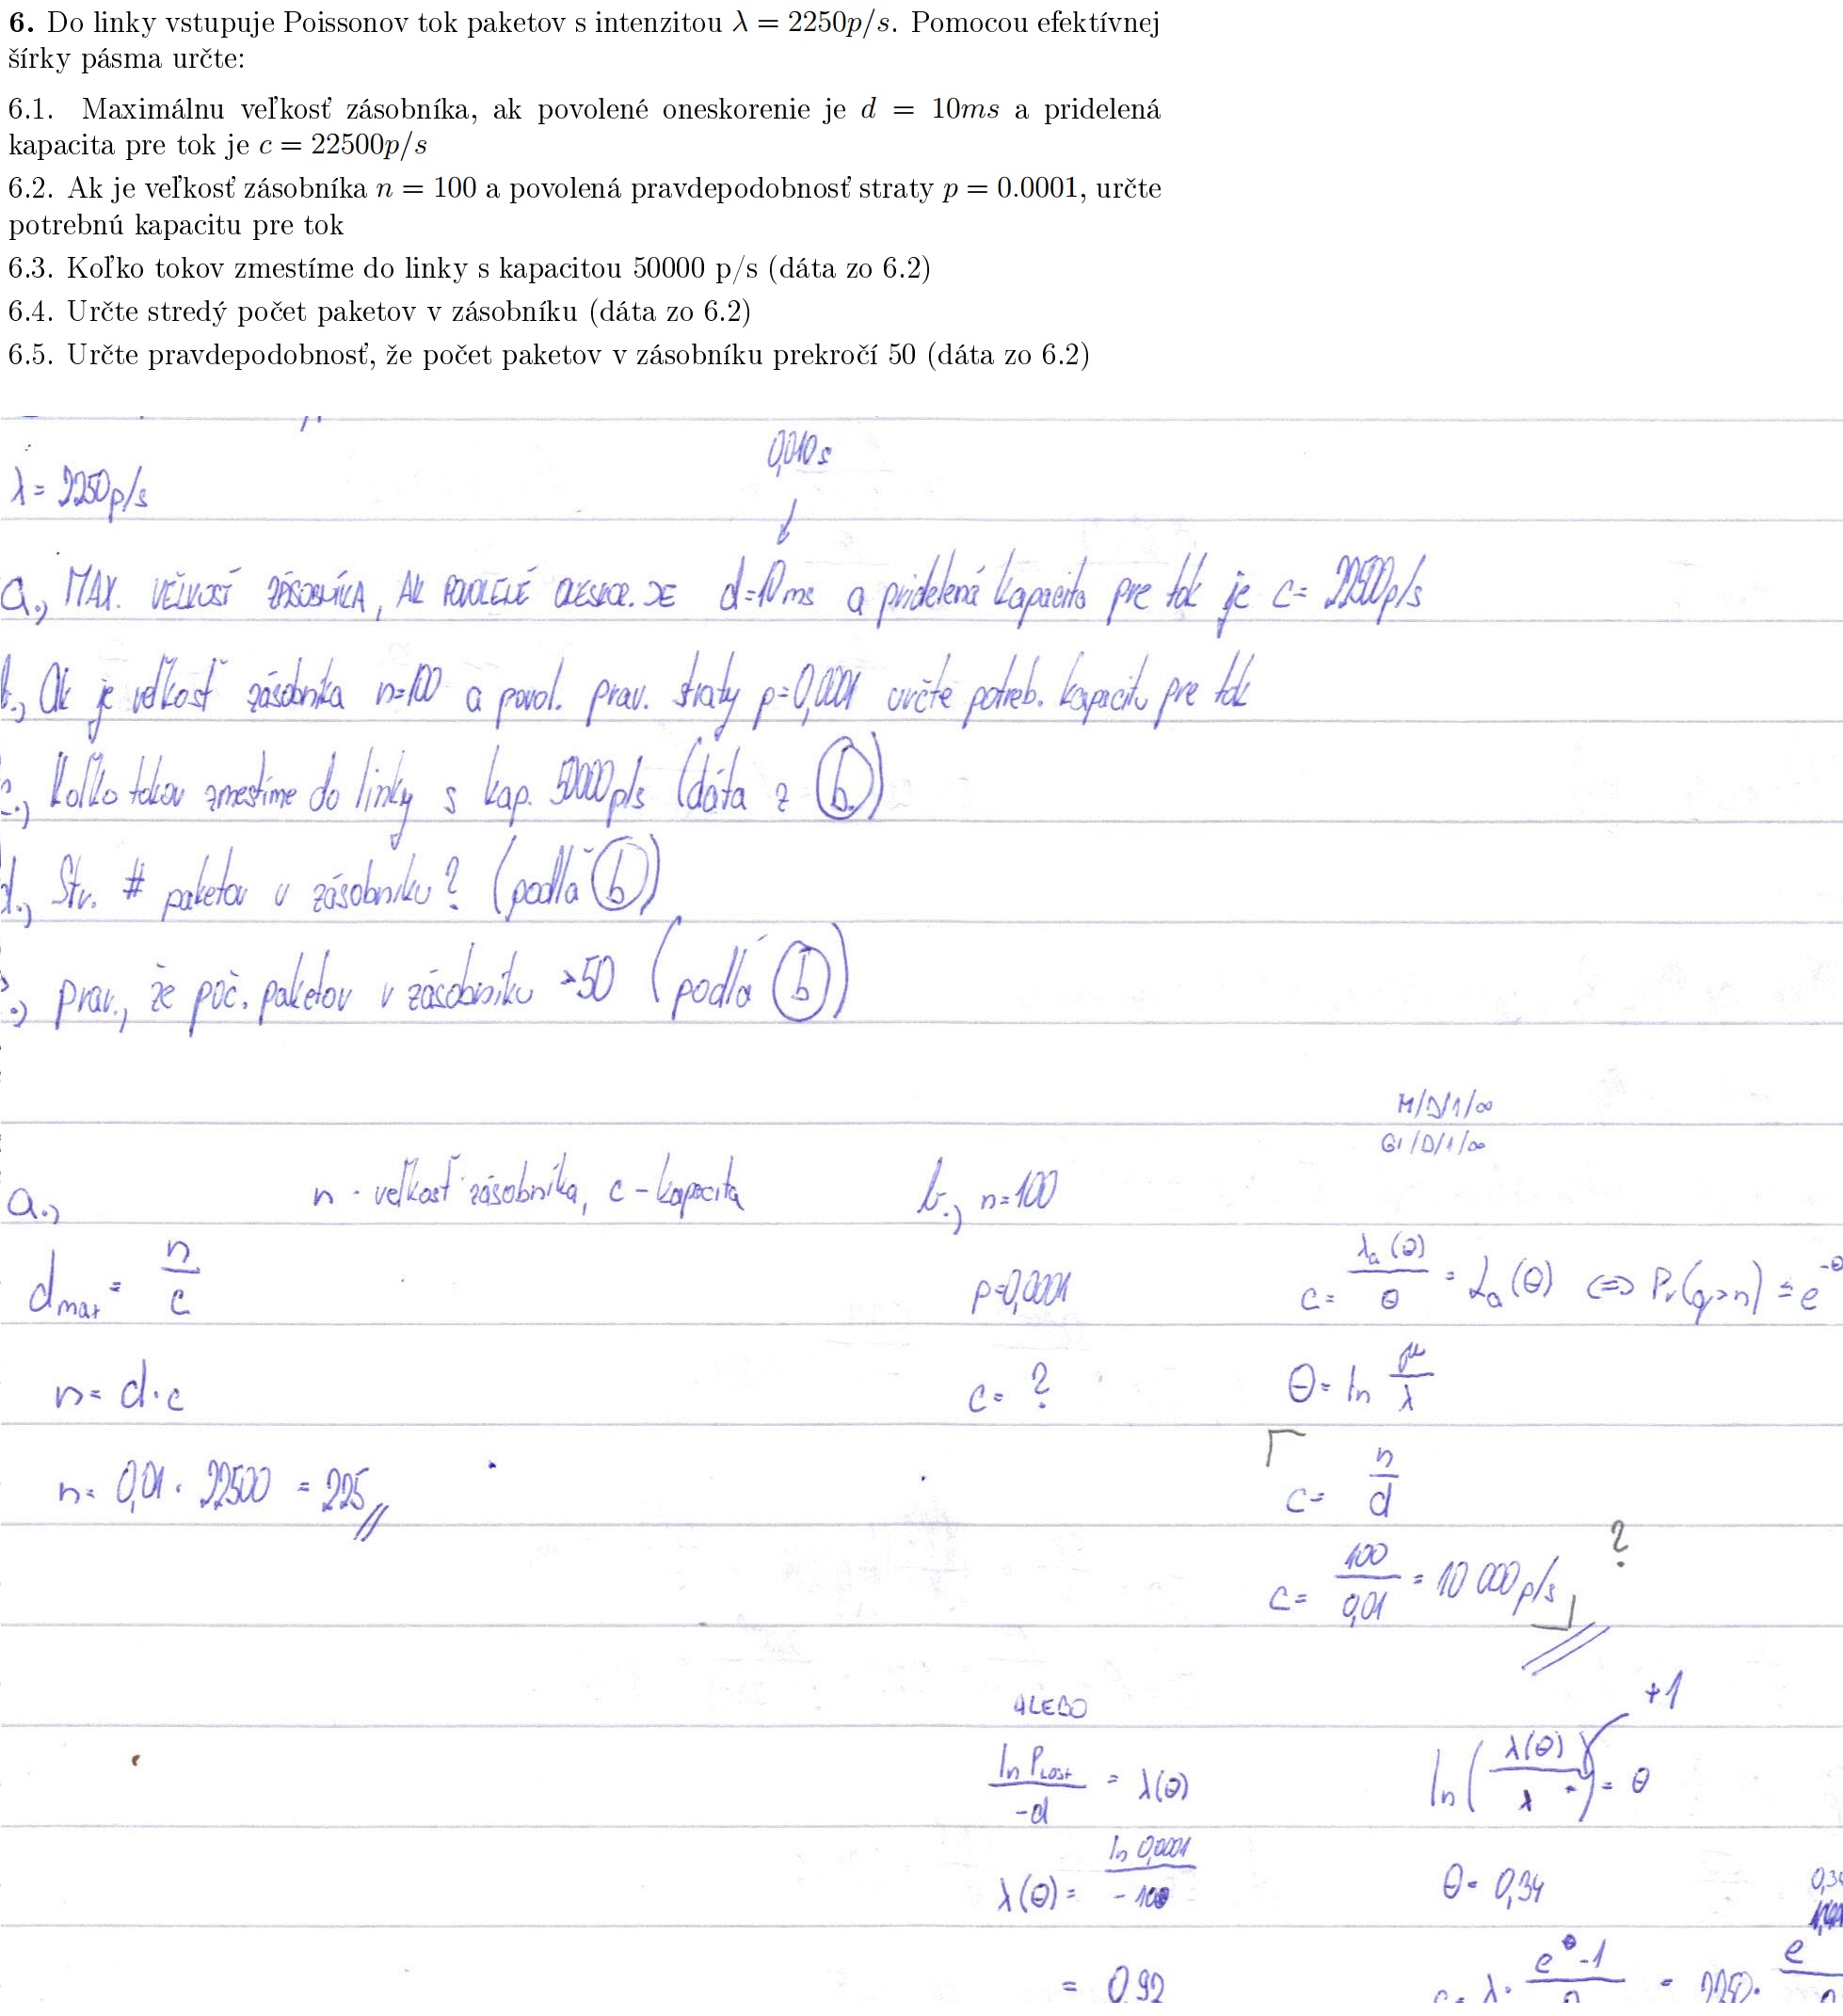 6. Do linky vstupuje Poissonov tok paketov s intenzitou λ = 2250p/s. Pomocou efektívnej
šírky pásma určte:
6.1. Maximálnu veľkosť zásobníka, ak povolené oneskorenie je d = 10ms a pridelená
kapacita pre tok je c = 22500p/s
6.2. Ak je veľkosť zásobníka n = 100 a povolená pravdepodobnosť straty p = 0.0001, určte
potrebnú kapacitu pre tok
6.3. Koľko tokov zmestíme do linky s kapacitou 50000 p/s (dáta zo 6.2)
6.4. Určte stredý počet paketov v zásobníku (dáta zo 6.2)
6.5. Určte pravdepodobnosť, že počet paketov v zásobníku prekročí 50 (dáta zo 6.2)
0,010s
λ = 2250p/s
a., MAX. VEĽKOSŤ ZÁSOBNÍKA, AK POVOLENÉ ONESKOR. JE d=10ms a pridelená kapacita pre tok je c= 22500p/s
b., Ak je veľkosť zásobníka n=100 a povol. prav. straty p=0,0001 určte potreb. kapacitu pre tok
Koľko tokov zmestíme do linky s kap. 50000p/s (dáta z b.)
d., Str. # paketov v zásobníku? (podľa b)
prav., že poč. paketov v zásobníku >50 (podľa b)
M/D/1/∞
GI/D/1/∞
a., n - veľkosť zásobníka, c - kapacita
b., n=100
d_max = n/c
p=0,0001
c = λ_a(θ)/θ = L_a(θ) <=> Pr(q>n) ≐ e^-θ
n = d·c
c = ?
θ = ln μ/λ
c = n/d
n = 0,01 · 22500 = 225
c = 100/0,01 = 10 000 p/s ?
ALEBO
+1
ln P_LOST/-d = λ(θ)
ln(λ(θ)/λ) = θ
λ(θ) = ln 0,0001/-100
θ = 0,34
= 0,92
c = λ · e^θ-1 = 2250· e